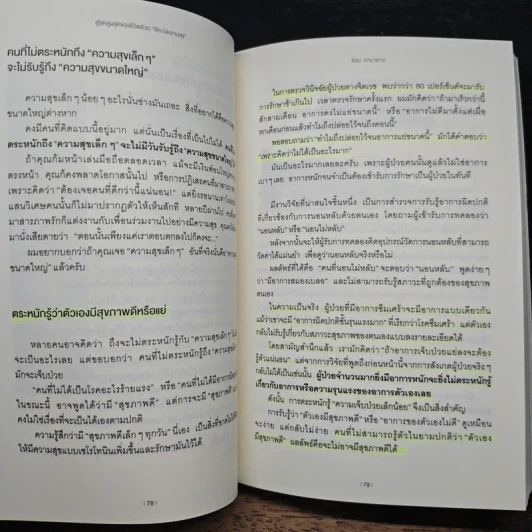 สู่จุดสูงสุดของชีวิตด้วย "พีระมิดสามสุข"
คนที่ไม่ตระหนักถึง "ความสุขเล็ก ๆ"
จะไม่รับรู้ถึง "ความสุขขนาดใหญ่"
ความสุขเล็ก ๆ น้อย ๆ อะไรนั่นช่างมันเถอะ สิ่งที่อยากได้
ขนาดใหญ่ต่างหาก
คงมีคนที่คิดแบบนี้อยู่มาก แต่นั่นเป็นเรื่องที่เป็นไปไม่ได้
ตระหนักถึง "ความสุขเล็ก ๆ" จะไม่มีวันรับรู้ถึง "ความสุขขนาดใหญ่"
ถ้าคุณก้มหน้าเล่นมือถือตลอดเวลา แม้จะมีเงิน
ตรงหน้า คุณก็คงพลาดโอกาสนั้นไป หรือการปฏิเสธคนที่มา
เพราะคิดว่า "ต้องเจอคนที่ดีกว่านี้แน่นอน!" แต่ยิ่งรอนานเท่าไหร่
แสนวิเศษคนนั้นก็ไม่มาปรากฏตัวให้เห็นสักที หลายปีผ่านไป
มาสารภาพรักก็แต่งงานกับเพื่อนร่วมงานไปอย่างมีความสุข
มานั่งเสียดายว่า "ตอนนั้นเพียงแค่เราตอบตกลงไปก็คงจะ..."
ผมอยากบอกว่าถ้าคุณเจอ "ความสุขเล็ก ๆ" อันที่จริงนั่น
ขนาดใหญ่" แล้วครับ
ตระหนักรู้ว่าตัวเองมีสุขภาพดีหรือแย่
หลายคนอาจคิดว่า ถึงจะไม่ตระหนักรู้กับ "ความสุขเล็ก ๆ"
จะเป็นอะไรเลย แต่ขอบอกว่า คนที่ไม่ตระหนักรู้ถึง "ความสุขเล็ก ๆ"
มักจะเจ็บป่วย
"คนที่ไม่ได้เป็นโรคอะไรร้ายแรง" หรือ "คนที่ไม่ได้มีอาการผิดปกติ
ในขณะนี้ อาจพูดได้ว่ามี "สุขภาพดี" แต่การจะมี "สุขภาพดี"
คงไม่ใช่เรื่องที่จะรู้ได้ด้วยตนเองตามปกติ
ความรู้สึกว่ามี "สุขภาพดีเล็ก ๆ ทุกวัน" นี่เอง เป็นสิ่งที่
ให้มีความสุขแบบเซโรโทนินเพิ่มขึ้นและรักษามันไว้ได้
| 78 |
ชิอน คาบาซาวะ
ในการตรวจวินิจฉัยผู้ป่วยทางจิตเวช พบว่ากว่า 80 เปอร์เซ็นต์จะมารับ
การรักษาช้าเกินไป เวลาตรวจรักษาครั้งแรก ผมมักคิดว่า "ถ้ามาเร็วกว่านี้
สักสามเดือน อาการคงไม่แย่ขนาดนี้" หรือ "อาการไม่ดีมาตั้งแต่เมื่อ
หกเดือนก่อนแล้วทำไมถึงปล่อยไว้จนถึงตอนนี้"
พอสอบถามว่า "ทำไมถึงปล่อยไว้จนอาการแย่ขนาดนี้" มักได้คำตอบว่า
"เพราะคิดว่าไม่ได้เป็นอะไรมาก"
มันเป็นอะไรมากเลยละครับ เพราะผู้ป่วยคนนั้นดูแล้วไม่ใช่อาการ
เบา ๆ เลย อาการหนักจนจำเป็นต้องเข้ารับการรักษาเป็นผู้ป่วยในทันที
มีงานวิจัยที่น่าสนใจชิ้นหนึ่ง เป็นการสำรวจการรับรู้อาการผิดปกติ
ที่เกี่ยวข้องกับการนอนหลับด้วยตนเอง โดยถามผู้เข้ารับการทดลองว่า
"นอนหลับ" หรือ "นอนไม่หลับ"
หลังจากนั้นจะให้ผู้รับการทดลองติดอุปกรณ์วัดการนอนหลับที่สามารถ
วัดค่าได้แม่นยำ เพื่อดูว่านอนหลับจริงหรือไม่
ผลลัพธ์ที่ได้คือ "คนที่นอนไม่หลับ" จะตอบว่า "นอนหลับ" พูดง่าย ๆ
ว่า "มีอาการสมองเบลอ" และไม่สามารถรับรู้สภาวะที่ถูกต้องของสุขภาพ
ตนเอง
ในความเป็นจริง ผู้ป่วยที่มีอาการซึมเศร้าจะมีอาการแบบเดียวกัน
แม้ว่าเราจะมี "อาการผิดปกติขั้นรุนแรงมาก" ที่เรียกว่าโรคซึมเศร้า แต่ตัวเอง
กลับไม่รับรู้เกี่ยวกับสภาวะสุขภาพของตนเองแบบลงรายละเอียดได้
โดยสามัญสำนึกแล้ว เรามักคิดว่า "ถ้าอาการเจ็บป่วยแย่ลงจะต้อง
รู้ตัวแน่นอน" แต่จากการวิจัยที่พูดถึงก่อนหน้านี้จากการสังเกตผู้ป่วยจริง ๆ
กลับไม่ได้เป็นเช่นนั้น ผู้ป่วยจำนวนมากยิ่งมีอาการหนักจะยิ่งไม่ตระหนักรู้
เกี่ยวกับอาการหรือความรุนแรงของอาการตัวเองเลย
ดังนั้น การตระหนักรู้ "ความเจ็บป่วยเล็กน้อย" จึงเป็นสิ่งสำคัญ
การรับรู้ว่า "ตัวเองมีสุขภาพดี" หรือ "อาการของตัวเองไม่ดี" ดูเหมือน
จะง่าย แต่กลับไม่ง่าย คนที่ไม่สามารถรู้ตัวในยามปกติว่า "ตัวเอง
มีสุขภาพดี" ผลลัพธ์คือจะไม่อาจมีสุขภาพดีได้
| 79 |